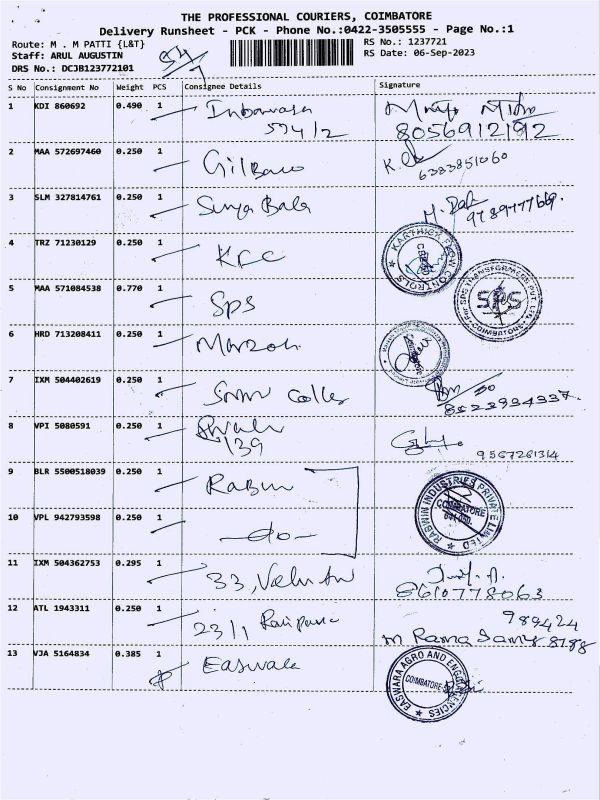 THE PROFESSIONAL COURIERS, COIMBATORE
Delivery Runsheet - PCK - Phone No.:0422-3505555 - Page No.:1
Route: M . M PATTI {L&T}
RS No.: 1237721
Staff: ARUL AUGUSTIN
RS Date: 06-Sep-2023
DRS No.: DCJB123772101
S No Consignment No Weight PCS Consignee Details Signature
1 KDI 860692 0.490 1
574/2 8056912192
2 MAA 572697460 0.250 1
6383851060
3 SLM 327814761 0.250 1 Surya Bala
4 TRZ 71230129 0.250 1 KFC
KARTHICK FLOW CONTROLS
5 MAA 571084538 0.770 1 SPS
For SPS TRANSFORMERS PVT. LTD. COIMBATORE
SPS
6 HRD 713208411 0.250 1
7 IXM 504402619 0.250 1
8 VPI 5080591 0.250 1
139 9567261314
9 BLR 5500518039 0.250 1
RABWIN INDUSTRIES PRIVATE LIMITED
COIMBATORE
10 VPL 942793598 0.250 1 -do-
11 IXM 504362753 0.295 1 33,
8610778063
12 ATL 1943311 0.250 1 23/1
989424
m Rama Samy 8788
13 VJA 5164834 0.385 1
EASWARA AGRO AND ENGG AGENCIES
COIMBATORE